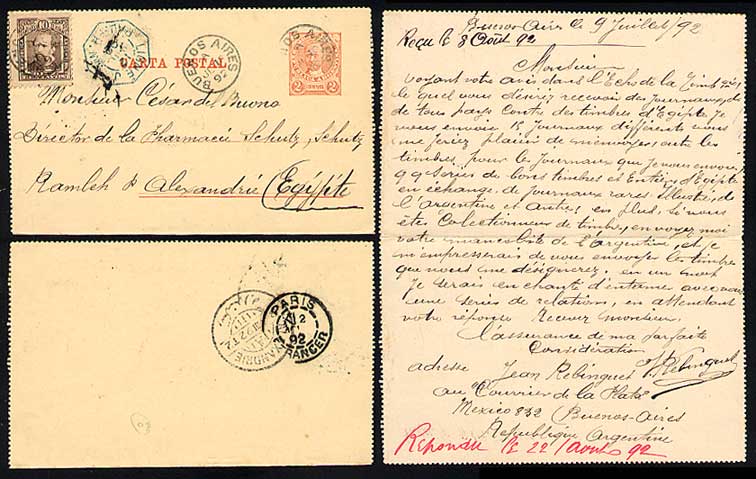 10
LIGNE
CARTA POSTAL
BUENOS AIRES
BUENOS AIRES
2
Monsieur César del Buono
Director de la Pharmacie Schutz, Schutz,
Ramleh Alexandrie (Egypte
PARIS
2
92
ETRANGER
ALEXANDRIE
Buenos Aires le 9 Juillet/92
Reçu le 8 Août 92
Monsieur
voyant votre avis dans l'Echo de la Timb
le quel vous désirez recevoir des journaux
de tous pays contre des timbres d'Egipte je
vous envoie 15 journaux differents vous
me feriez plaisir de m'envoyer
timbres pour le journaux que je vous envoie,
series de bons timbres et Entiers d'Egipte
en echange de journaux rares Illustrés, de
l'argentine et autres, en plus, si vous
éte Colectionneur de timbre, envoyez moi
votre mancoliste de l'Argentine, et je
m'empresserais de vous envoyer les timbre
que vous me désignerez, en un mot
Je serais enchanté d'entamer avec vous
une series de relation, en attendant
votre réponse Recevez monsieur.
l'assurance de ma parfaite
Considération
adresse Jean Rebinguet JRebinguet
au "Courrier de la Plata"
Mexico 832 Buenos-Aires
Republique Argentine
Répondu le 22/août 92